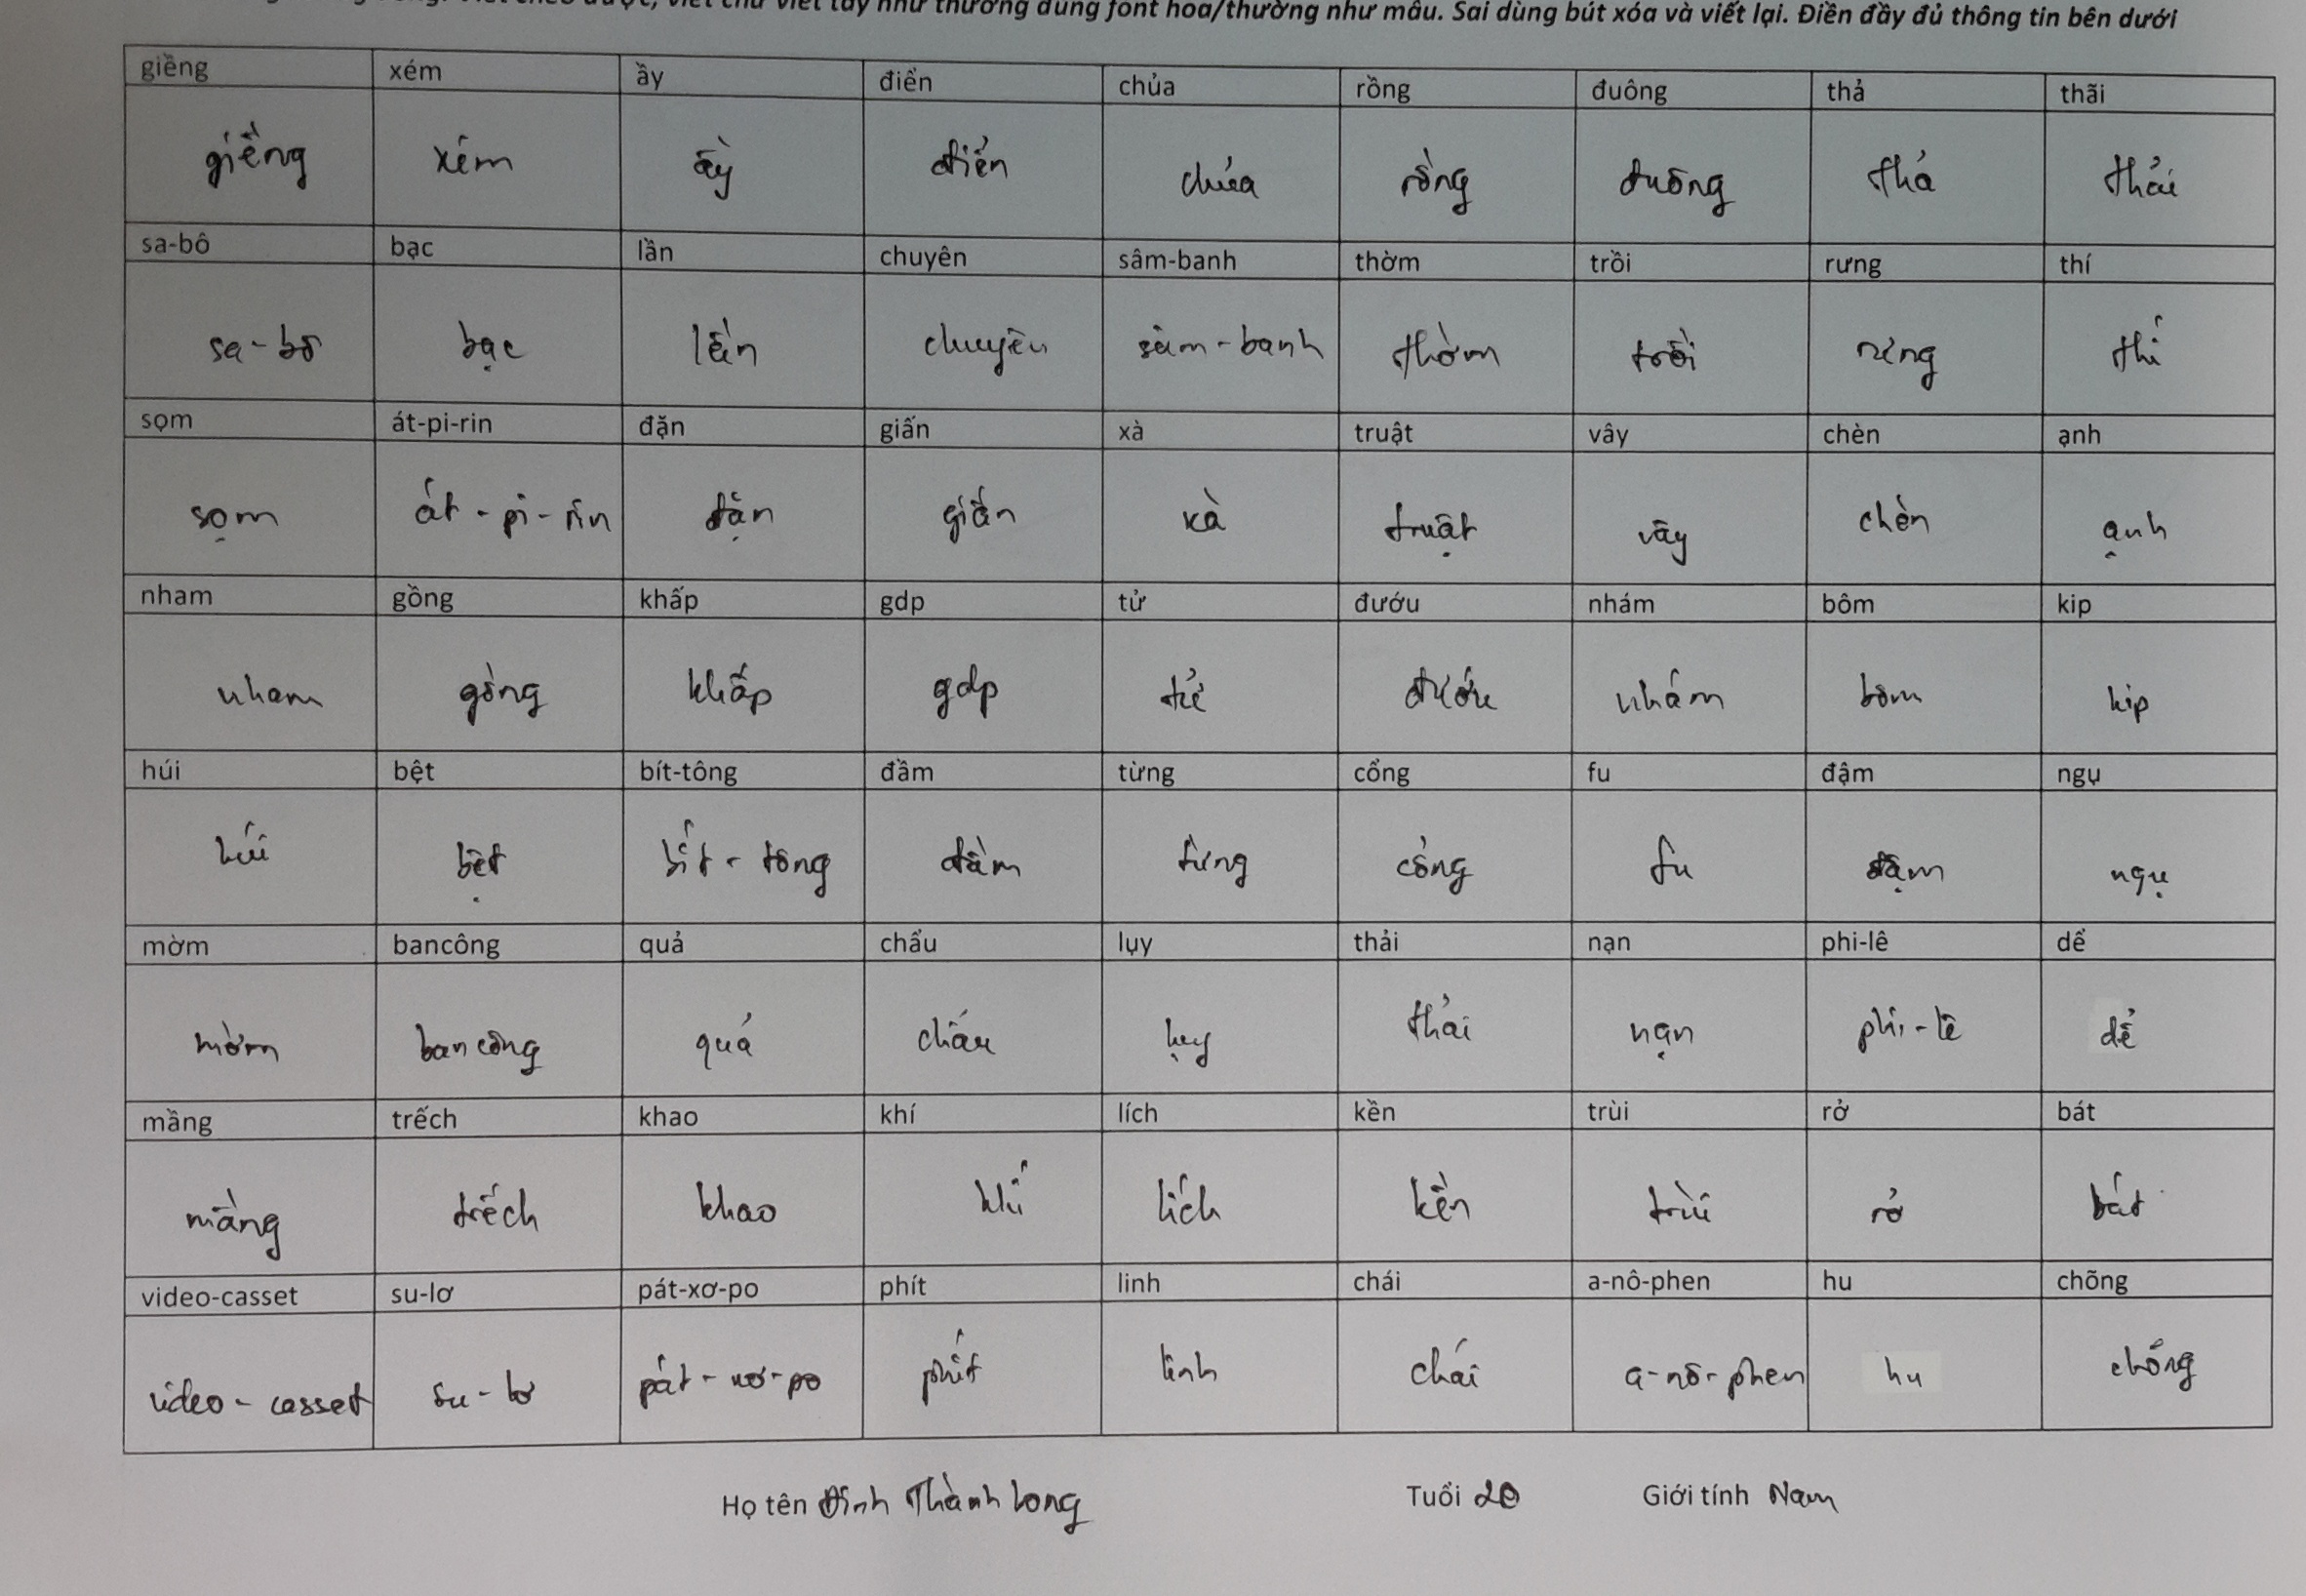 viết chữ viết tay như thường dùng font hoa/thường như mẫu. Sai dùng bút xóa và viết lại. Điền đầy đủ thông tin bên dưới
giềng xém ầy điển chủa rồng đuông thả thãi
giềng xém ầy điển chủa rồng đuông thả thãi
sa-bô bạc lần chuyên sâm-banh thờm trồi rưng thí
sa-bô bạc lần chuyên sâm-banh thờm trồi rưng thí
sọm át-pi-rin đặn giấn xà truật vây chèn ạnh
sọm át-pi-rin đặn giấn xà truật vây chèn ạnh
nham gồng khấp gdp tử đướu nhám bôm kip
nham gồng khấp gdp tử đướu nhám bôm kip
húi bệt bít-tông đầm từng cổng fu đậm ngụ
húi bệt bít-tông đầm từng cổng fu đậm ngụ
mờm bancông quả chẩu lụy thải nạn phi-lê dể
mờm bancông quả chẩu lụy thải nạn phi-lê dể
mằng trếch khao khí lích kền trùi rở bát
mằng trếch khao khí lích kền trùi rở bát
video-casset su-lơ pát-xơ-po phít linh chái a-nô-phen hu chõng
video-casset su-lơ pát-xơ-po phít linh chái a-nô-phen hu chõng
Họ tên Đinh Thành Long Tuổi 20 Giới tính Nam